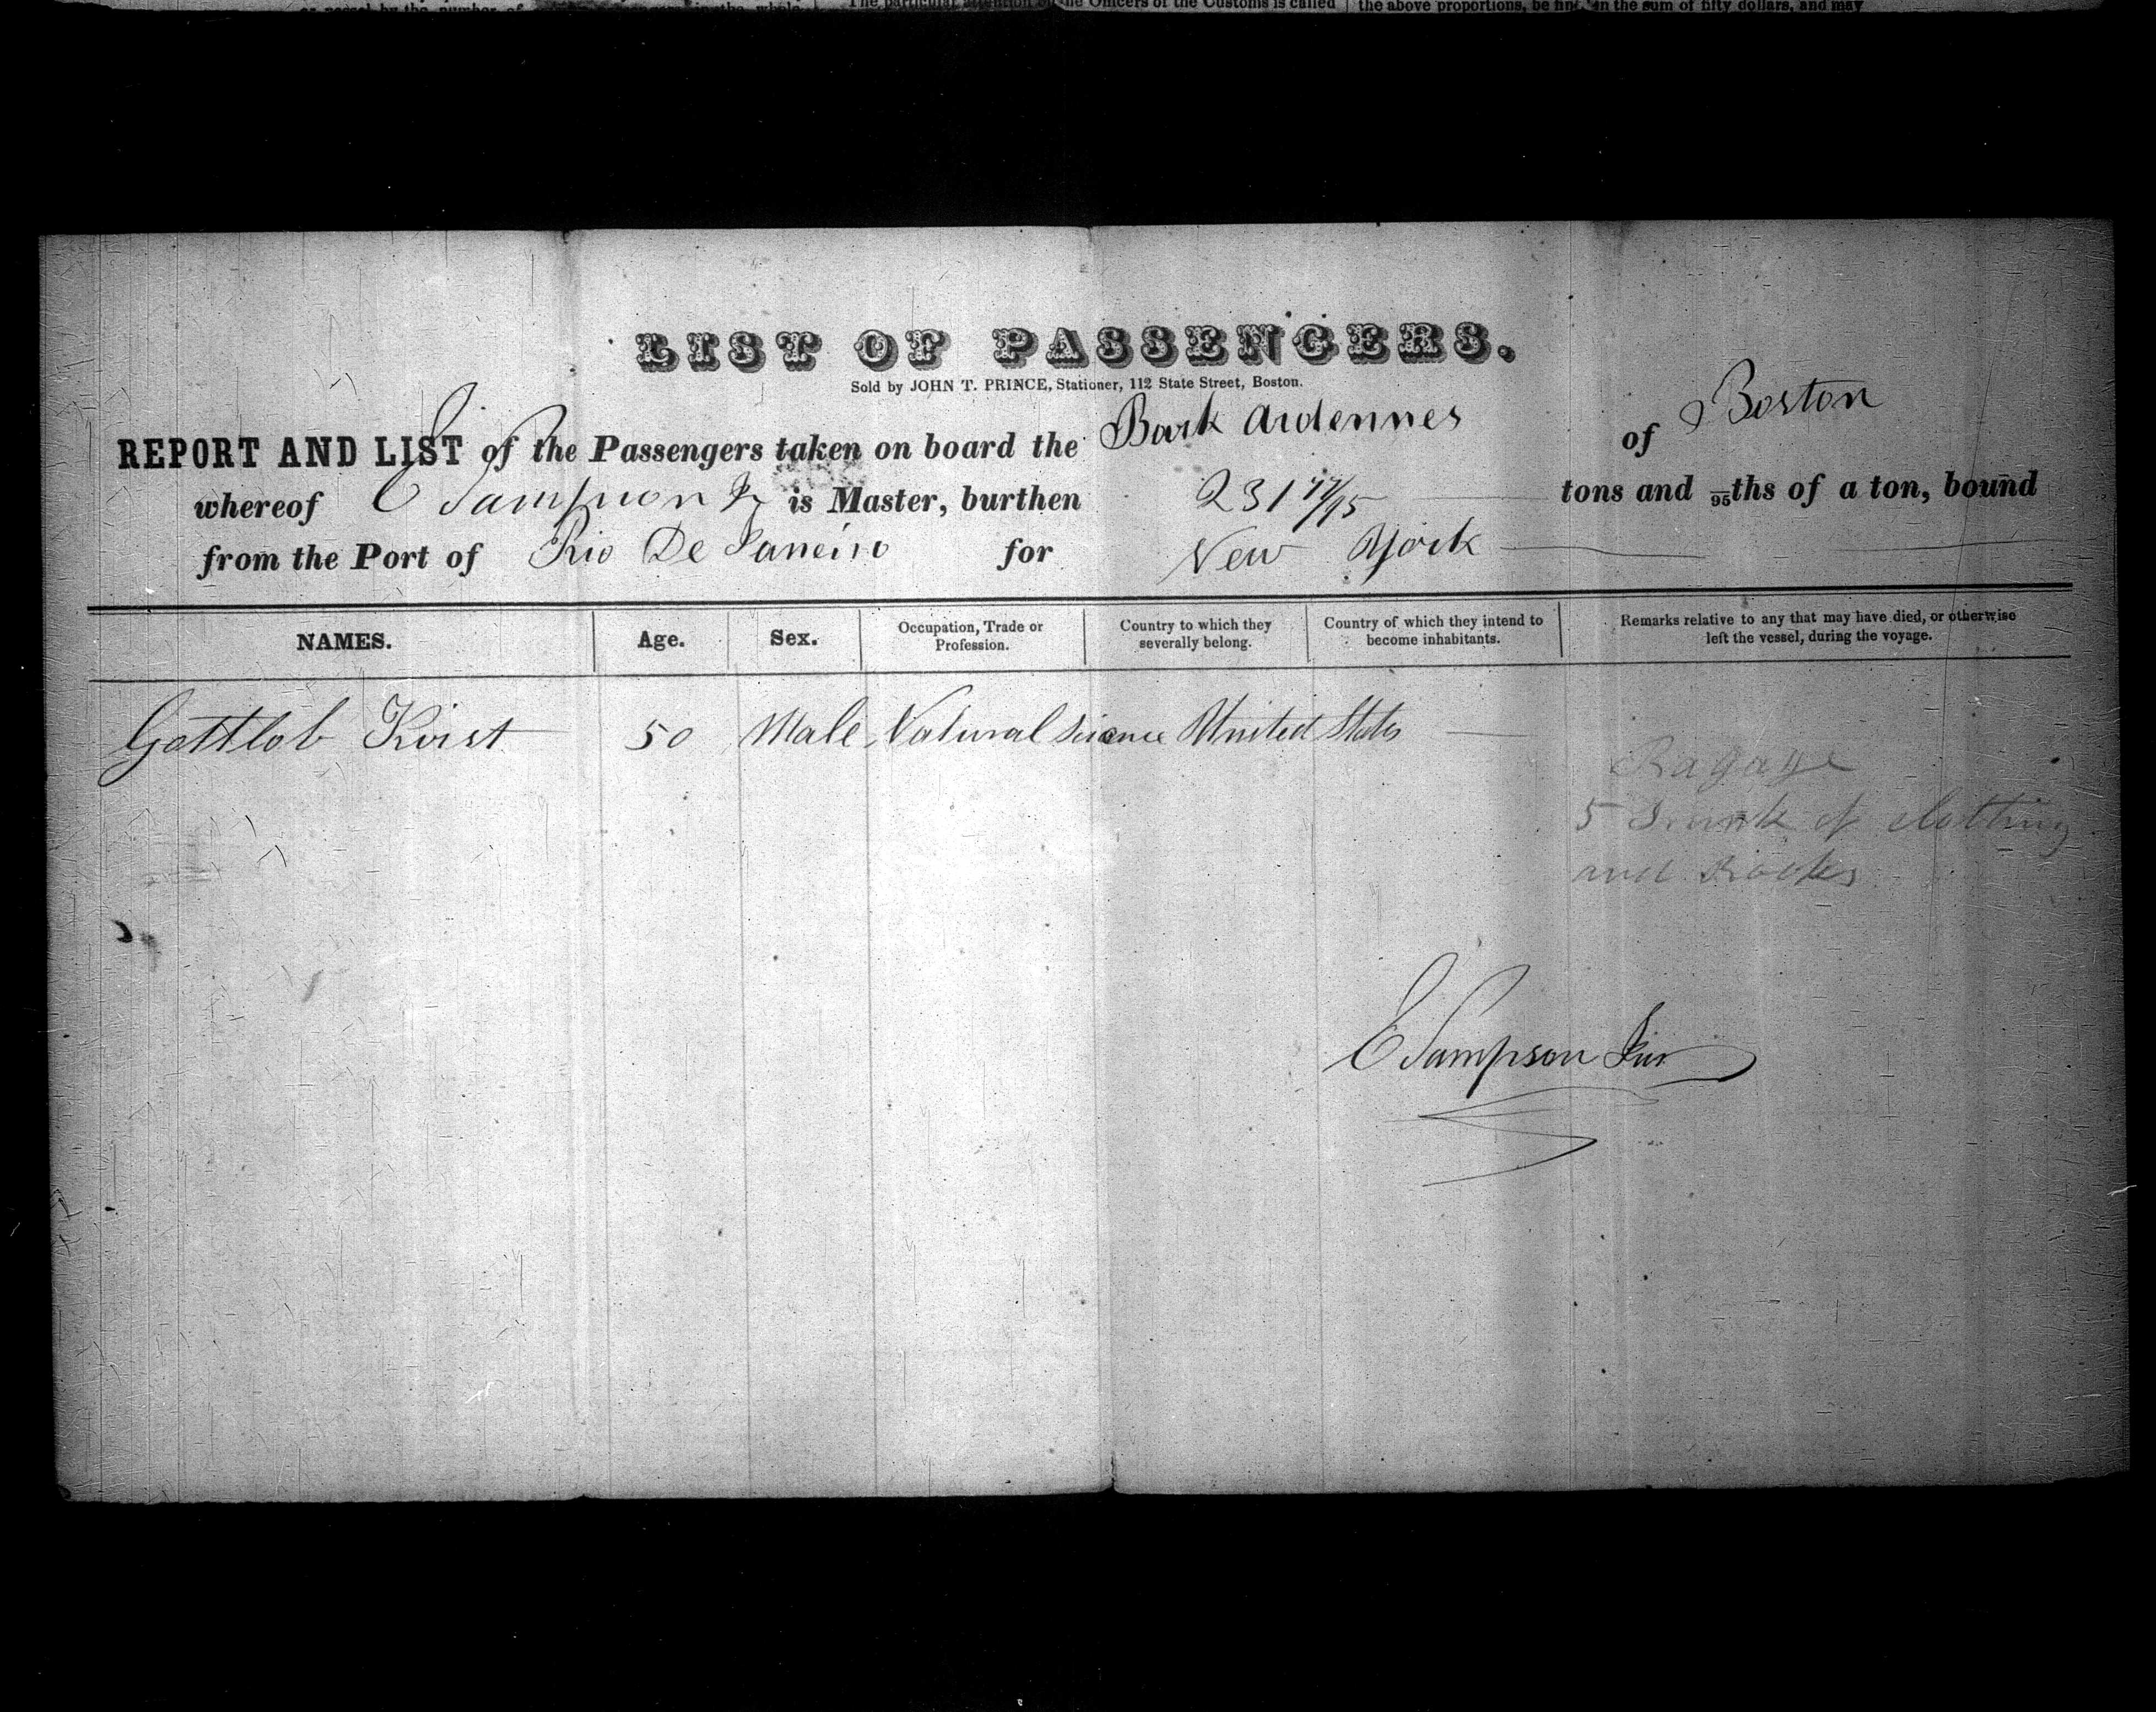 The particular attention of the Officers of the Customs is called
the above proportions, be fin in the sum of fifty dollars, and may
LIST OF PASSENGERS.
Sold by JOHN T. PRINCE, Stationer, 112 State Street, Boston.
REPORT AND LIST of the Passengers taken on board the Bark Ardennes of Boston
whereof E Sampson Jr is Master, burthen 231 77/95 tons and 95ths of a ton, bound
from the Port of Rio De Janeiro for New York
NAMES. Age. Sex. Occupation, Trade or Profession. Country to which they severally belong. Country of which they intend to become inhabitants. Remarks relative to any that may have died, or otherwise left the vessel, during the voyage.
Gottlob 50 Male Natural United States
Bagage
5 Trunk of clothing
and Books
E Sampson Jun